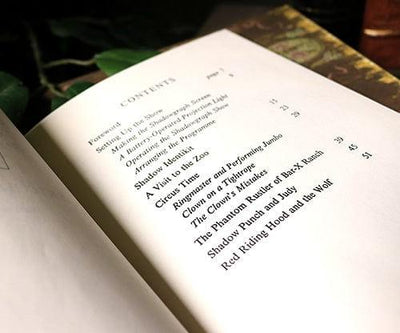 CONTENTS
Foreword page 7
Setting Up the Show 9
Making the Shadowgraph Screen
A Battery-Operated Projection Light
Operating the Shadowgraph Show
Arranging the Programme
Shadow Identikit 15
A Visit to the Zoo 23
Circus Time 29
Ringmaster and Performing Jumbo
Clown on a Tightrope
The Clown's Mistakes
The Phantom Rustler of Bar-X Ranch 39
Shadow Punch and Judy 45
Red Riding Hood and the Wolf 51